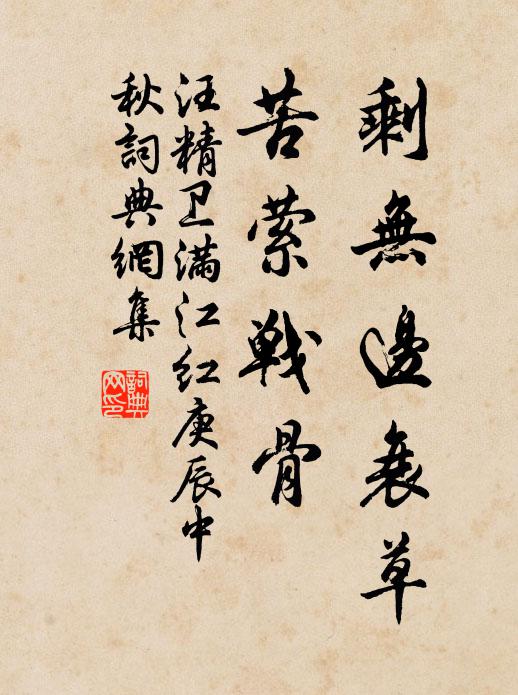 剩無邊衰草
苦縈戰骨
汪精卫满江红庚辰中
秋詞典網集
詞典
网印